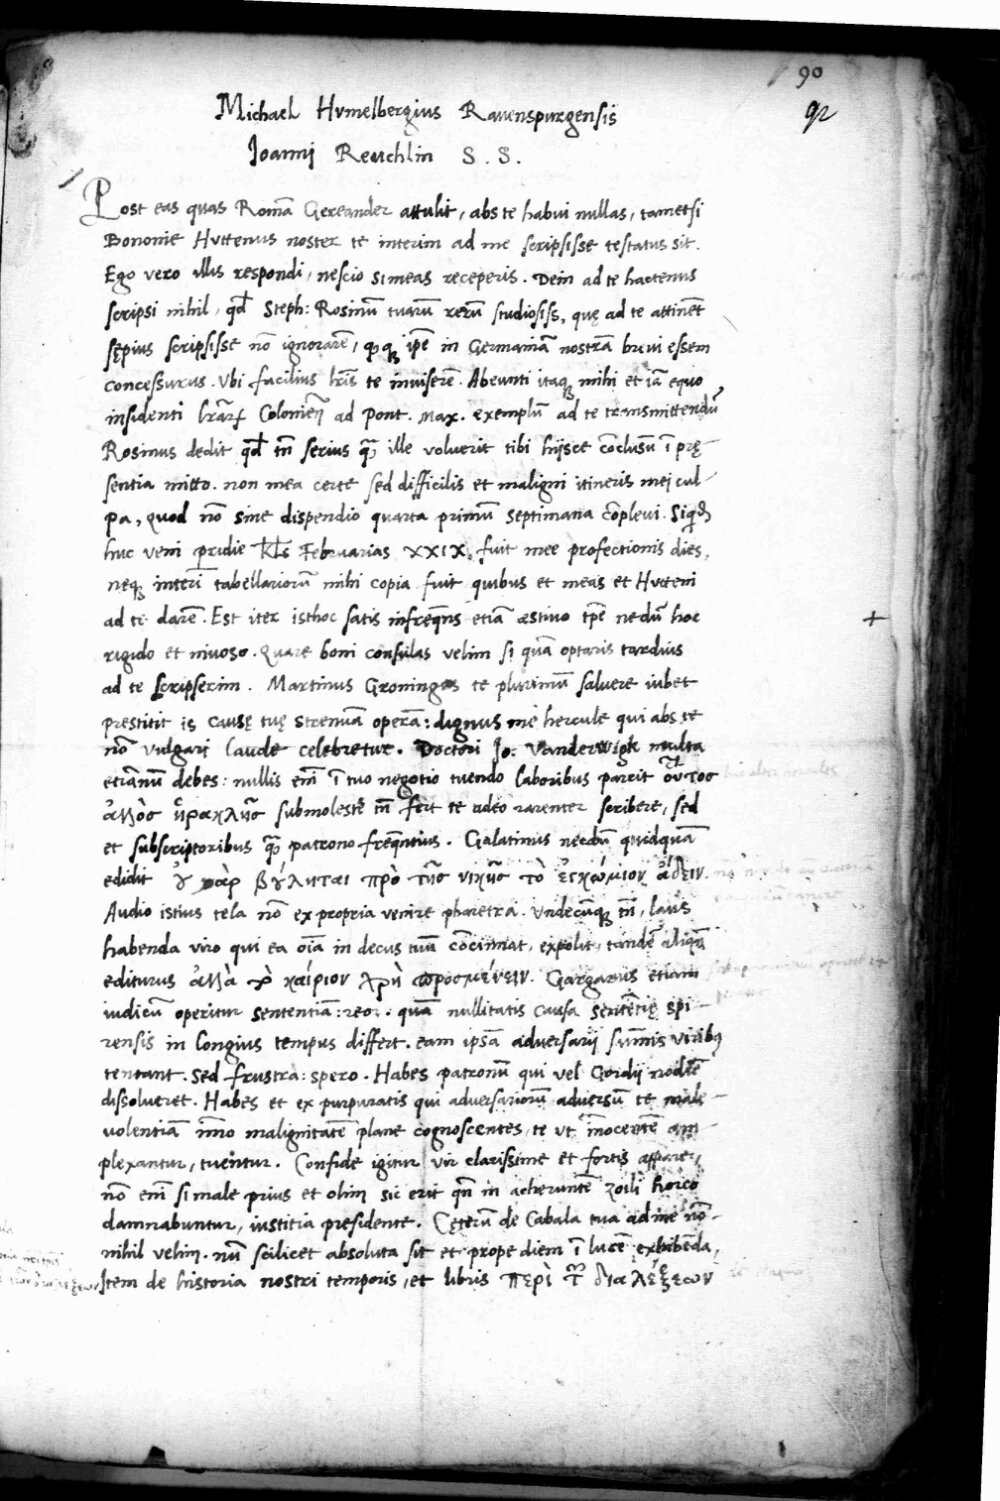 90
92
Michael Hvmelbergius Rauenspurgensis
Joanni Reuchlin S. S.
Post eas quas Romã Gereander attulit, abs te habui nullas, tametsi
Bononie Huttenus noster te interim ad me scripsisse testatus sit.
Ego vero illis respondi, nescio si meas receperis. Dein ad te hactenus
scripsi nihil, qd Steph: Rosinũ tuarũ rerũ studiosiss, quę ad te attinẽt
sępius scripsisse nõ ignorarẽ, qq ipẽ in Germaniã nostrã brevi essem
concessurus. Vbi facilius lrĩs te inviserẽ. Abeunti itaq mihi et iã equo
insidenti lrãr Colonieñ ad Pont. Max. exemplũ ad te transmittendũ
Rosinus dedit qd tñ serius q̃ ille voluerit tibi hijsce conclusũ ĩ prę-
sentia mitto. non mea certe sed difficilis et maligni itineris mei cul-
pa, quod nõ sine dispendio quarta primũ septimana cõplevi. Siqd
huc veni pridie Kls Februarias XXIX. fuit mee profectionis dies,
neq interĩ tabellariorũ mihi copia fuit quibus et meas et Hutteni
ad te darẽ. Est iter isthoc satis infreq̃ns etiã æstiuo tpẽ nedũ hoc
rigido et niuoso. Quare boni consulas velim si quã optaris tardius
ad te scripserim. Martinus Groningus te plurimũ salvere iubet
prestitit is causę tuę strenuã operã: dignus me hercule qui abs te
nõ vulgari laude celebretur. Doctori Jo: Vanderwigk multa
etiãnũ debes: nullis em̃ ĩ tuo negotio tuendo laboribus parcit οὗτος
ἄλλος ἡρακλῆς submolestẽ tñ fert te adeo rarenter scribere, sed
et subscriptoribus q̃ patrono freq̃ntius. Galatinus necdũ quidquã
edidit ȣ γὰρ βȣ́ληται πρὸ τῆς νίκης τὸ ἐγκώμιον ᾄδειν.
Audio istius tela nõ ex propria venire pharetra. Vndecũq tñ, laus
habenda viro qui ea oĩa in decus tuũ concinnat, expolit, tandẽ aliqñ
editurus ἀλλὰ τὸ καίριον χρὴ προσμένειν. Gargarus etiam
iudiciũ operitur sententiã: reor. quã nullitatis causa sentẽtię spi-
rensis in longius tempus differt. eam ipsã adversarij sum̃is viribus
tentant. Sed frustra: spero. Habes patronũ qui vel Gordij nodũ
dissolueret. Habes et ex purpuratis qui adversariorũ adversũ te male-
uolentiã im̃o malignitatẽ plane cognoscentes, te vt innocentẽ am-
plexantur, tuentur. Confide igitur vir clarissime et fortis
nõ em̃ si male prius et olim sic erit qñ in acheruntẽ zoili horco
damnabuntur, iustitia presidente. Cęterũ de Cabala tua ad me nõ
nihil velim. nũ scilicet absoluta sit et prope diem ĩ lucẽ exhibẽda,
Item de historia nostri temporis, et libris περὶ τ̃ διαλέξεων